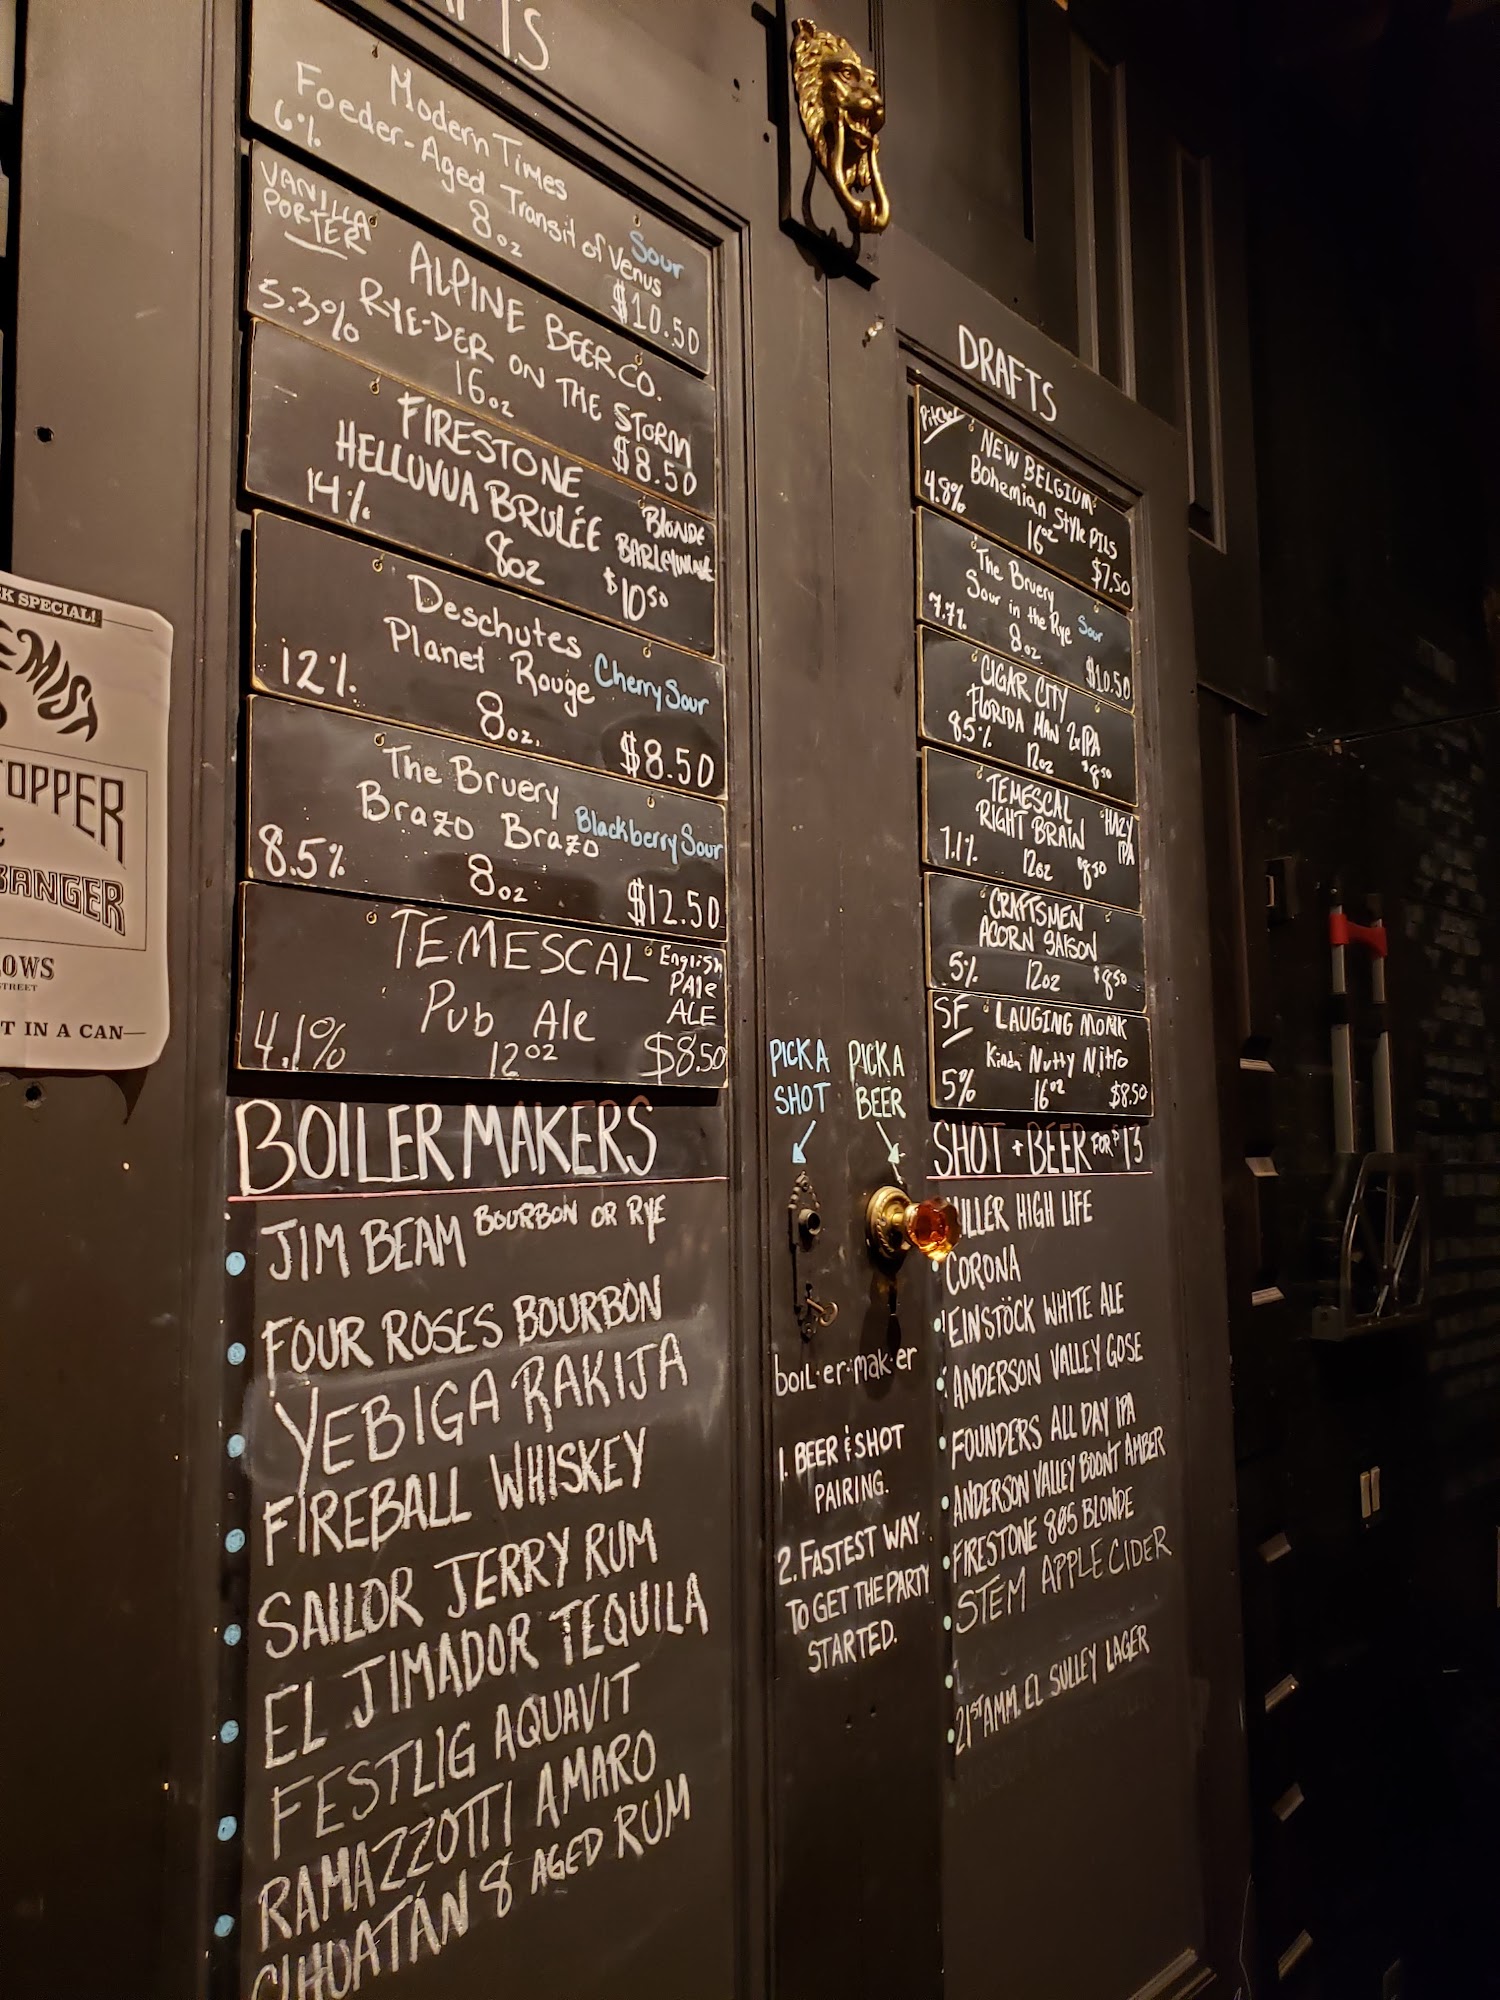 TS
Modern Times
Foeder-Aged Transit of Venus
Sour
6% 8oz $10.50
VANILLA
PORTER
ALPINE BEER CO.
RYE-DER ON THE STORM
5.3% 16oz $8.50
FIRESTONE
HELLUVUA BRULÉE
BLONDE
BARLEYWINE
14% 8oz $10.50
Deschutes
Planet Rouge
Cherry Sour
12% 8oz. $8.50
The Bruery
Brazo Brazo
Blackberry Sour
8.5% 8oz $12.50
TEMESCAL
Pub Ale
English
PAle
ALE
4.1% 12oz $8.50
BOILERMAKERS
JIM BEAM BOURBON OR RYE
FOUR ROSES BOURBON
YEBIGA RAKIJA
FIREBALL WHISKEY
SAILOR JERRY RUM
EL JIMADOR TEQUILA
FESTLIG AQUAVIT
RAMAZZOTTI AMARO
CIHUATÁN 8 AGED RUM
K SPECIAL!
EMIST
TOPPER
BANGER
LOWS
STREET
T IN A CAN
PICK A
SHOT
PICK A
BEER
boil·er·mak·er
1. BEER & SHOT
PAIRING.
2. FASTEST WAY
TO GET THE PARTY
STARTED.
DRAFTS
Pitcher
NEW BELGIUM
Bohemian Style PILS
4.8% 16oz $7.50
The Bruery
Sour in the Rye
Sour
7.7% 8oz $10.50
CIGAR CITY
FLORIDA MAN 2xIPA
8.5% 12oz $8.50
TEMESCAL
RIGHT BRAIN
HAZY
IPA
7.1% 12oz $8.50
CRAFTSMEN
ACORN SAISON
5% 12oz $8.50
SF
LAUGING MONK
Kinda Nutty Nitro
5% 16oz $8.50
SHOT + BEER FOR $13
MILLER HIGH LIFE
CORONA
EINSTÖCK WHITE ALE
ANDERSON VALLEY GOSE
FOUNDERS ALL DAY IPA
ANDERSON VALLEY BOONT AMBER
FIRESTONE 805 BLONDE
STEM APPLE CIDER
21ST AMM. EL SULLEY LAGER